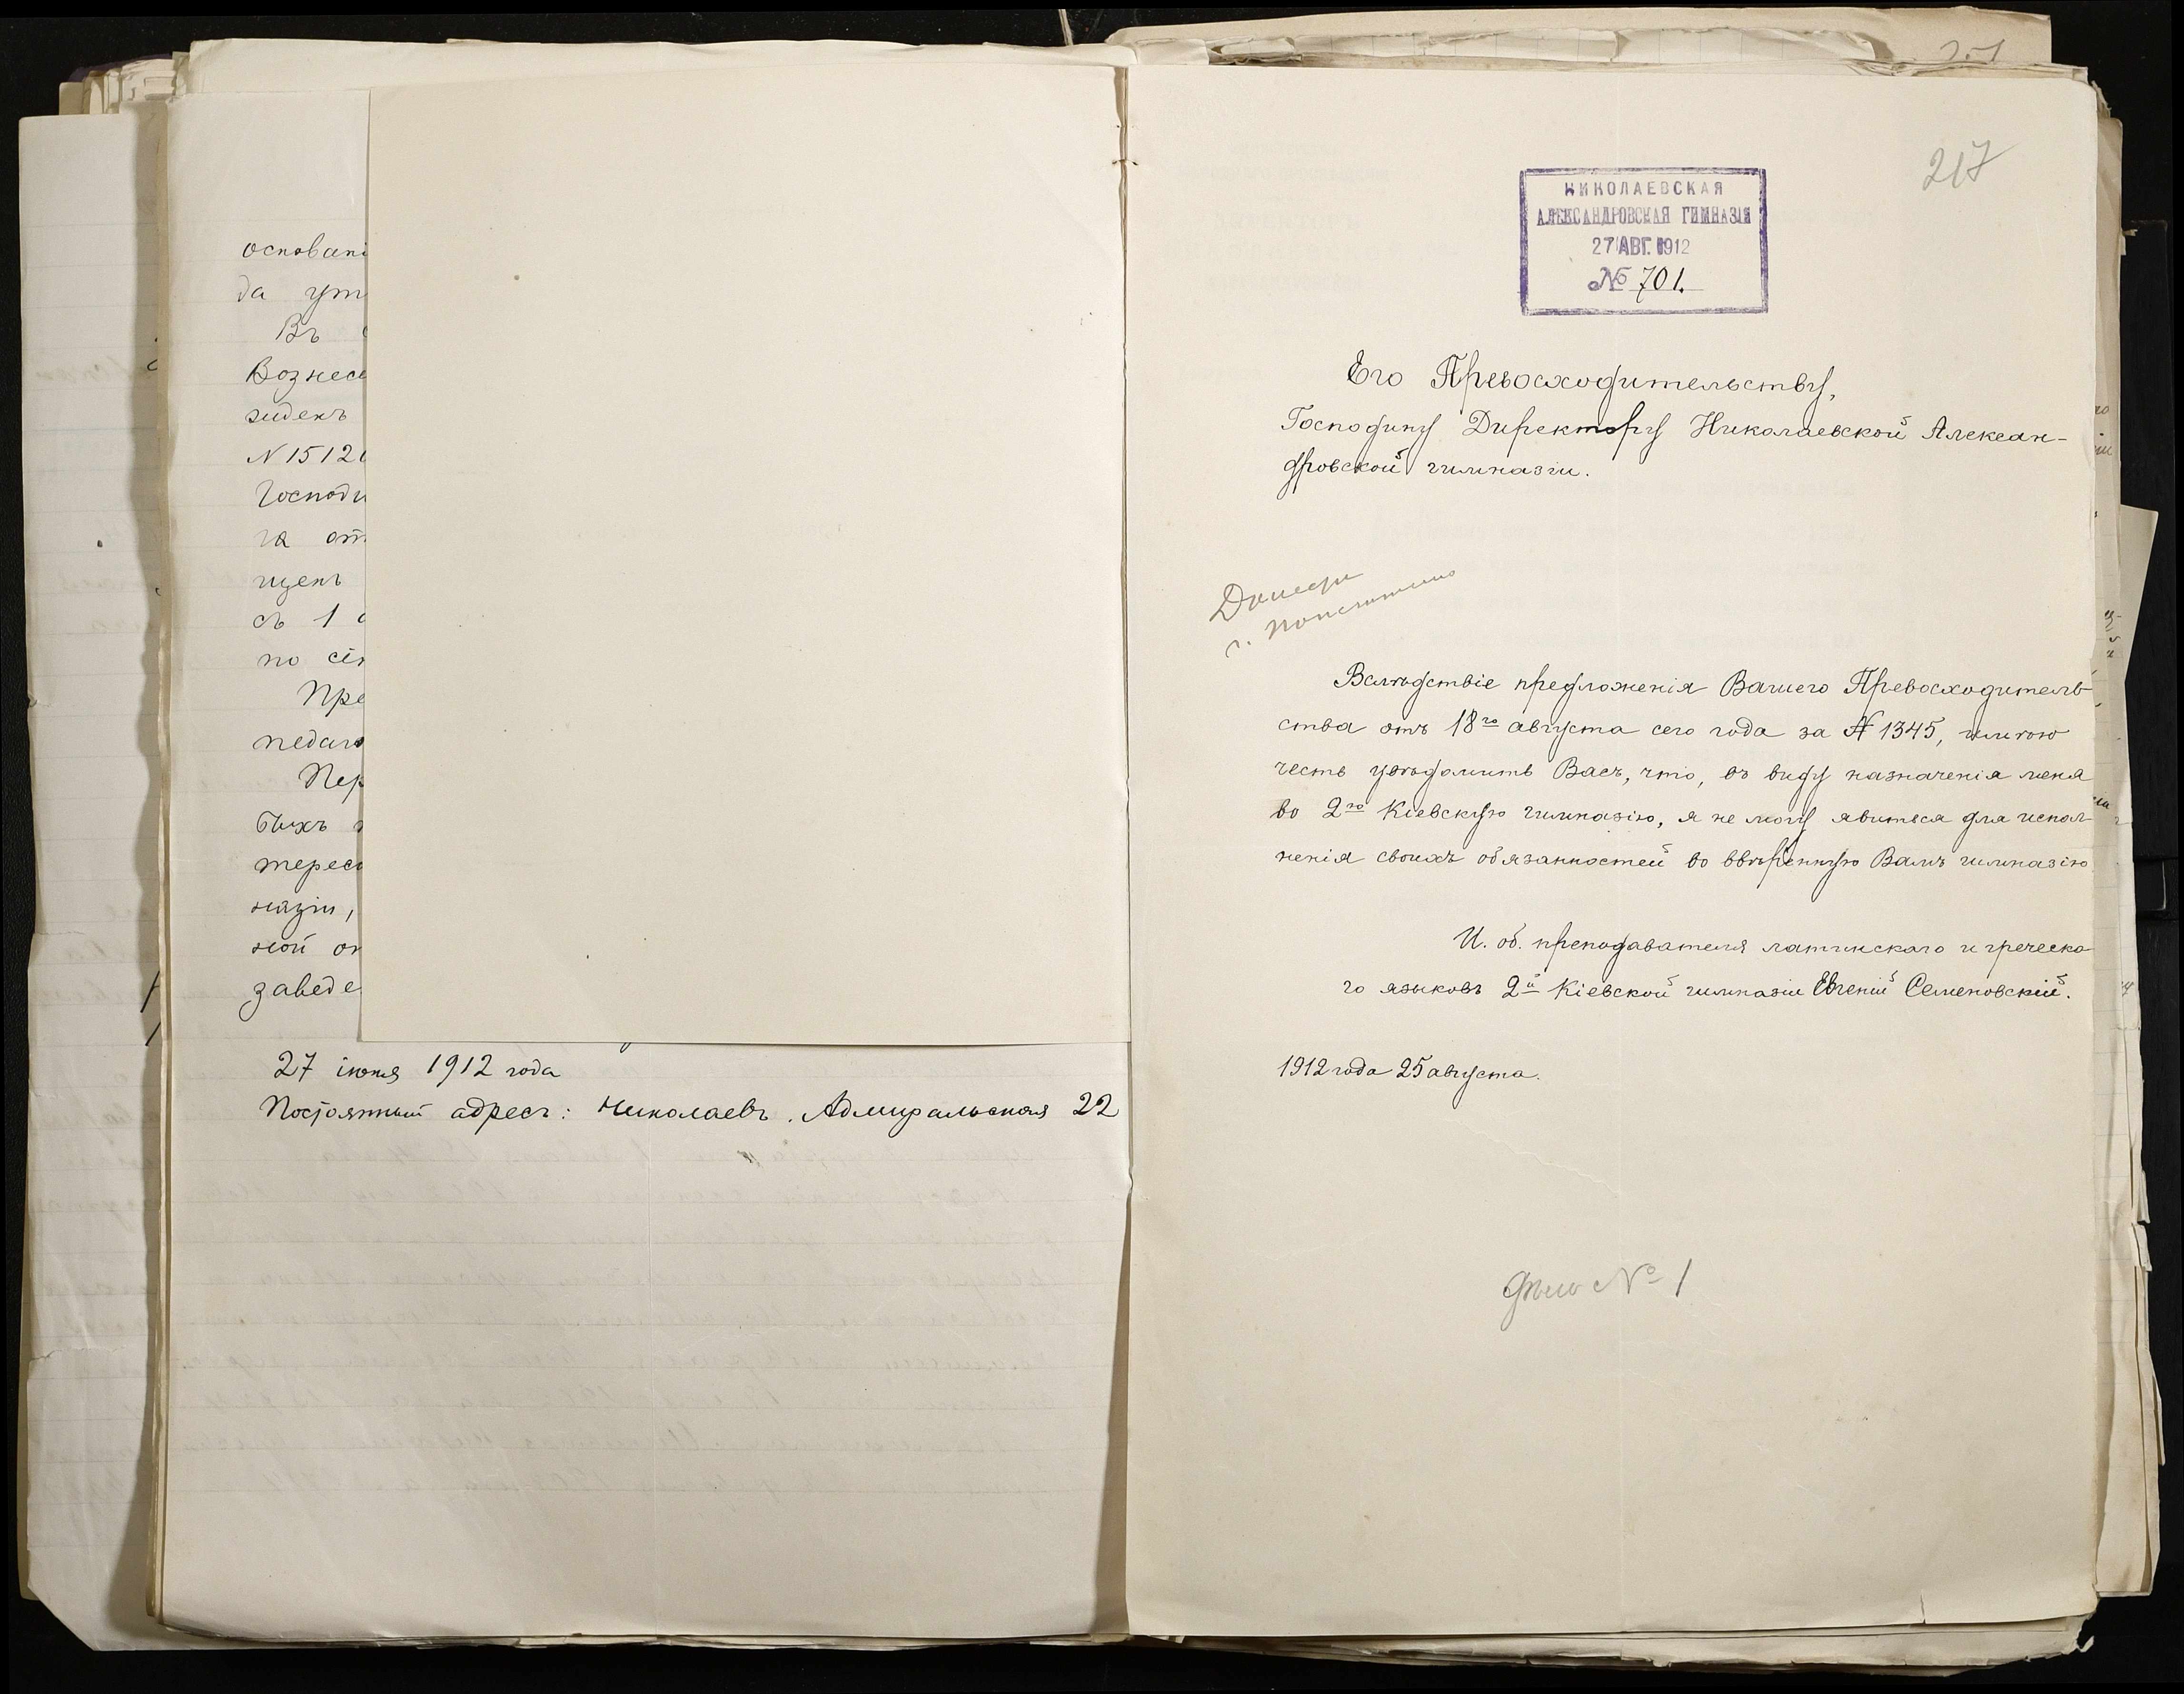 основані
да утв
Въ
Вознесе
зиденъ
N 1512
Господи
га отъ
щенъ
съ 1
по сі
Пре
педаго
Пер
быхъ
терес
назіи,
ной
заведе
27 іюня 1912 года
Постоянный адресъ: Николаевъ. Адмиральская 22
217
НИКОЛАЕВСКАЯ
АЛЕКСАНДРОВСКАЯ ГИМНАЗІЯ
27 АВГ. 1912
№ 701.
Его Превосходительству,
Господину Директору Николаевской Алексан-
дровской гимназіи.
Вслѣдствіе предложенія Вашего Превосходитель-
ства отъ 18го августа сего года за N 1345, имѣю
честь увѣдомить Васъ, что, въ виду назначенія меня
во 2ю Кіевскую гимназію, я не могу явиться для испол-
ненія своихъ обязанностей во ввѣренную Вамъ гимназію
И. об. преподавателя латинскаго и греческа-
го языковъ 2й Кіевской гимназіи Евгеній Семеновскій.
1912 года 25 августа.
Дѣло № 1